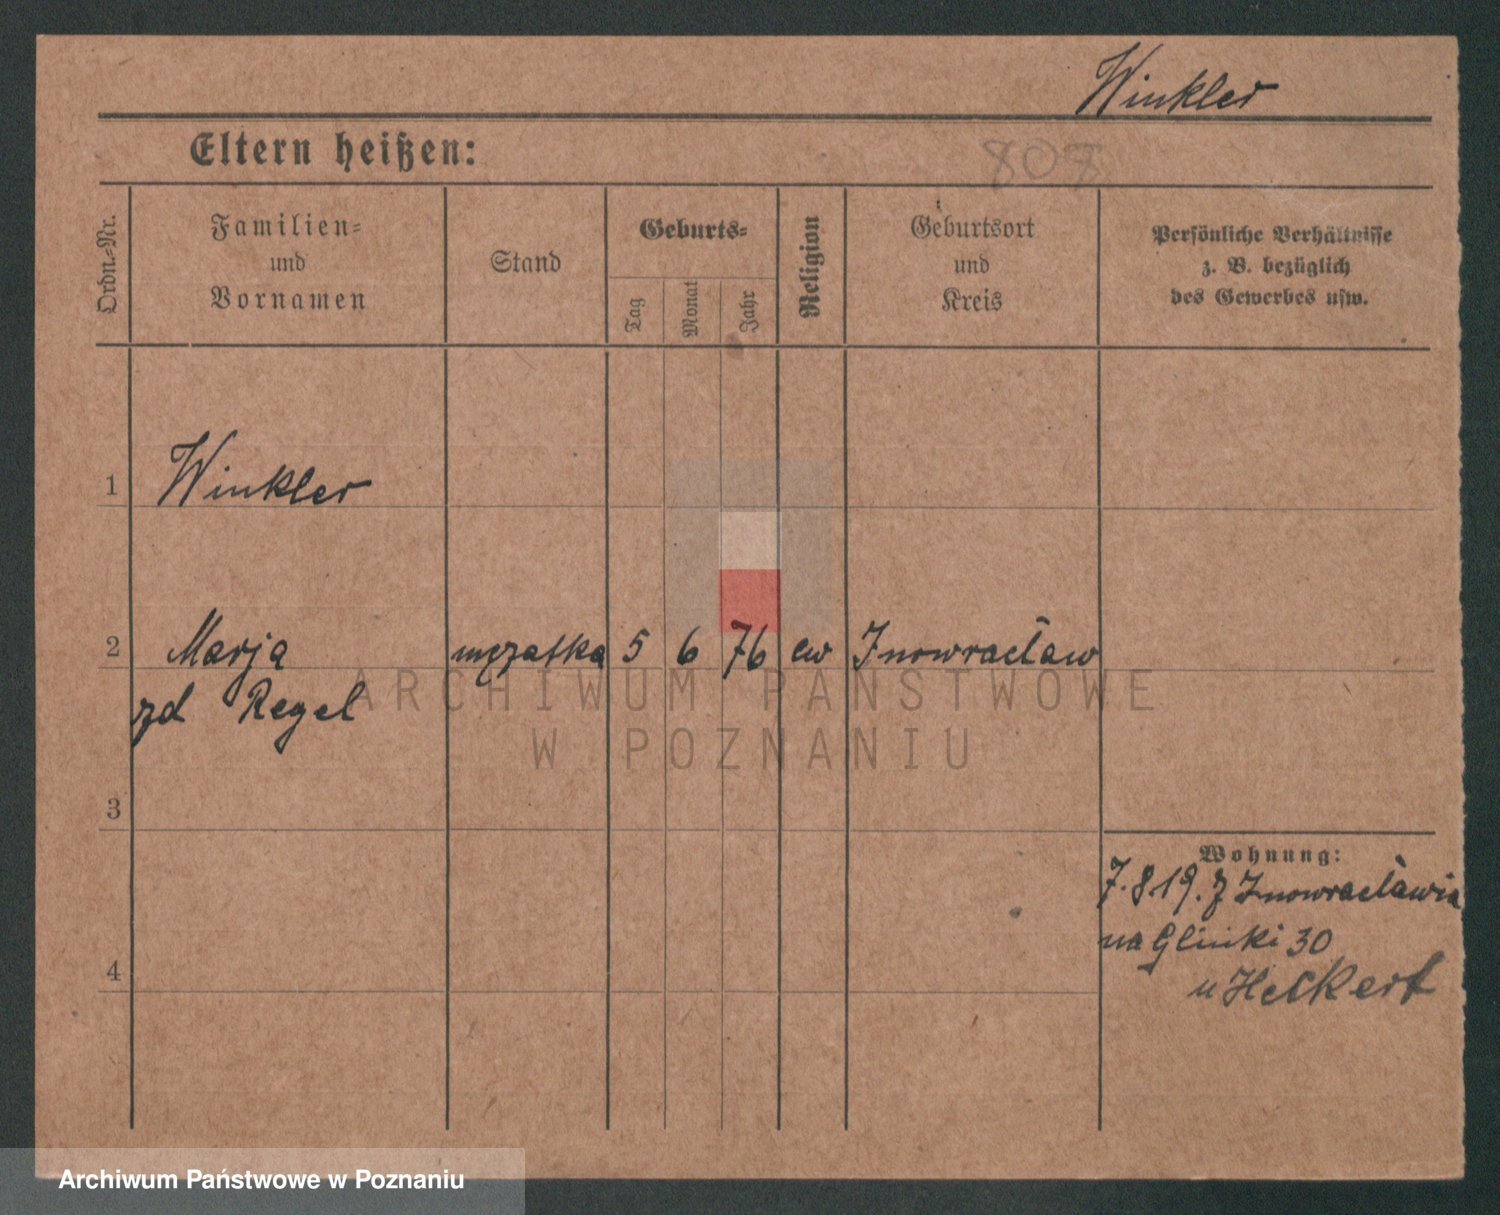 Winkler
Eltern heißen:
808
Ordn.-Nr.
Familien-
und
Vornamen
Stand
Geburts-
Tag
Monat
Jahr
Religion
Geburtsort
und
Kreis
Persönliche Verhältnisse
z. B. bezüglich
des Gewerbes usw.
1 Winkler
2 Marja mężatka 5 6 76 ew Inowracław
zd Regel
ARCHIWUM PAŃSTWOWE
W POZNANIU
3
Wohnung:
7.8.19. z Inowracławia
na Glinki 30
u Heckert
4
Archiwum Państwowe w Poznaniu